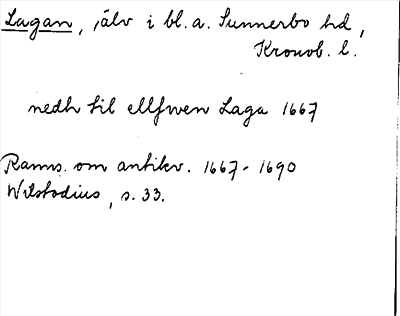 Lagan, älv i bl. a. Sunnerbo hd,
Kronob. l.
nedh til ellfwen Laga 1667
Ranns. om antikv. 1667-1690
Wilstadius, s. 33.